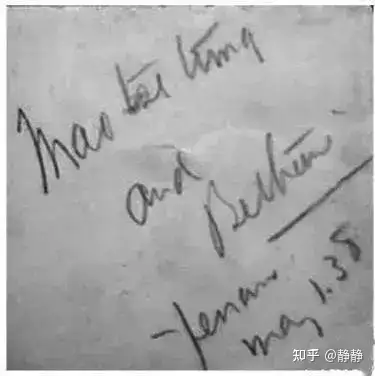 Mao tse tung
and
Bethune
-Yenan.
may 1.38
知乎 @静静